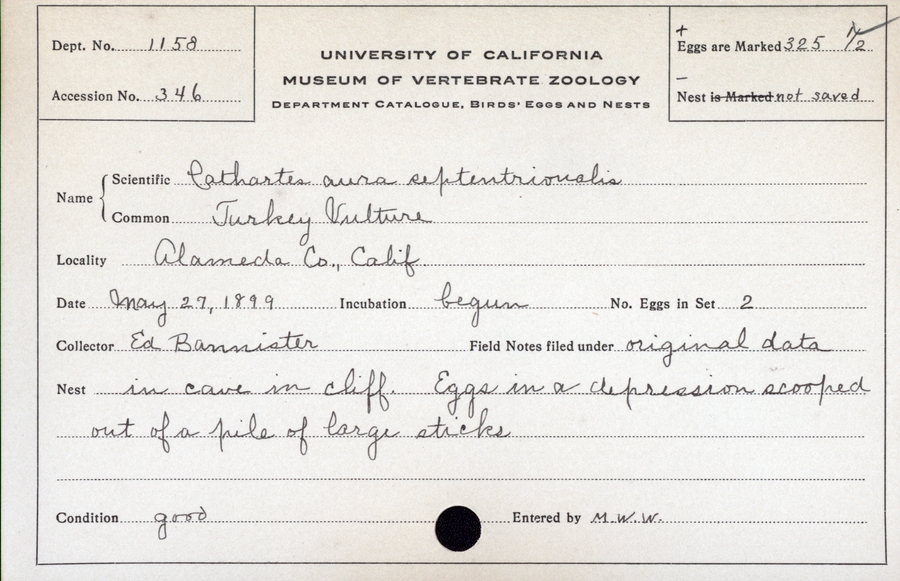 Dept. No. 1158
Accession No. 346
UNIVERSITY OF CALIFORNIA
MUSEUM OF VERTEBRATE ZOOLOGY
DEPARTMENT CATALOGUE, BIRDS' EGGS AND NESTS
+
Eggs are Marked 325 1/2
–
Nest is Marked not saved
Name
Scientific Cathartes aura septentrionalis
Common Turkey Vulture
Locality Alameda Co., Calif.
Date May 27, 1899 Incubation begun No. Eggs in Set 2
Collector Ed Bannister Field Notes filed under original data
Nest in cave in cliff. Eggs in a depression scooped
out of a pile of large sticks
Condition good Entered by M.W.W.